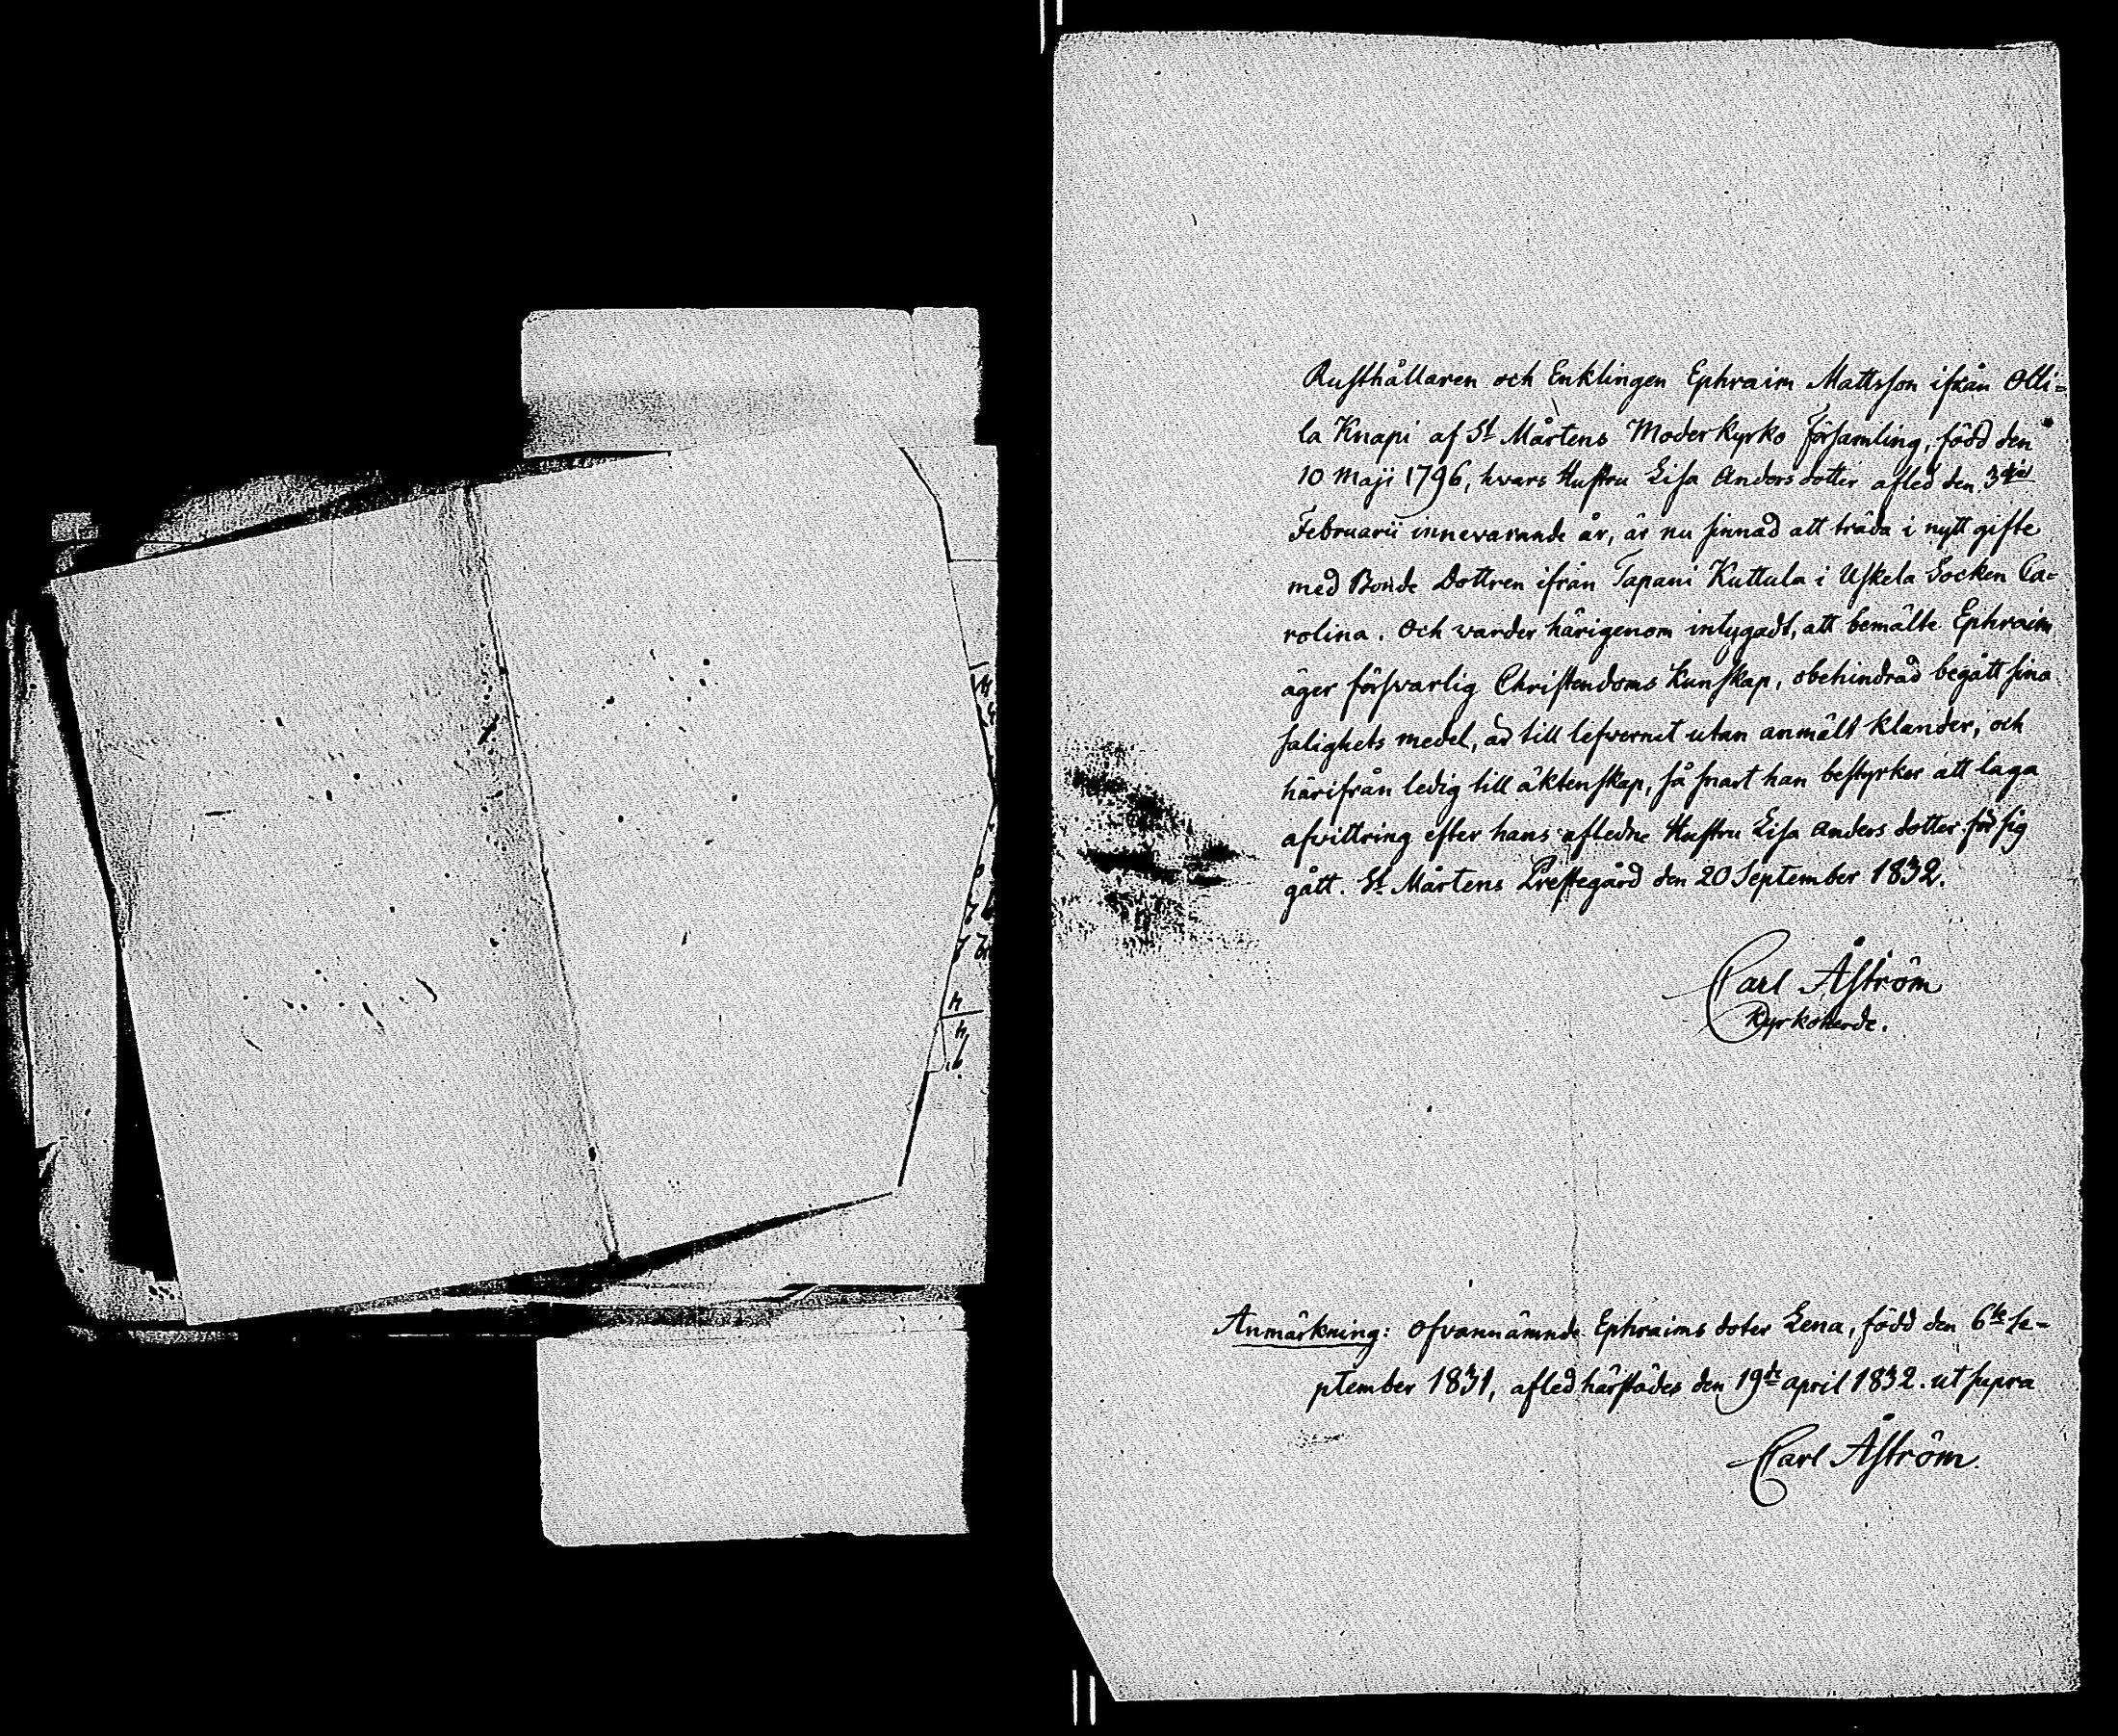 Rusthållaren och Enklingen Ephraim Mattsson ifrån Olli=
la Knapi af St Mårtens Moderkyrko Församling, född den
10 Maji 1796, hvars Hustru Lisa Andersdotter afled den 3
Februarii innevarande år, är nu sinnad att träda i nytt gifte
med Bonde Dottren ifrån Tapani Kuttula i Uskela Socken Ca=
rolina. Och varder härigenom intygadt, att bemälte Ephraim
äger försvarlig Christendoms Kunskap, obehindrad begått sina
salighets medel, är till lefvernet utan anmält klander, och
härifrån ledig till äktenskap, så snart han bestyrker att laga
afvittring efter hans afledne Hustru Lisa Anders dotter för sig
gått. St Mårtens Prestegård den 20 September 1832.
Carl Åström
Kyrkoherde.
Anmärkning: ofvannämnde Ephraims doter Lena, född den 6te Se-
ptember 1831, afled härstädes den 19de april 1832. ut supra
Carl Åström.